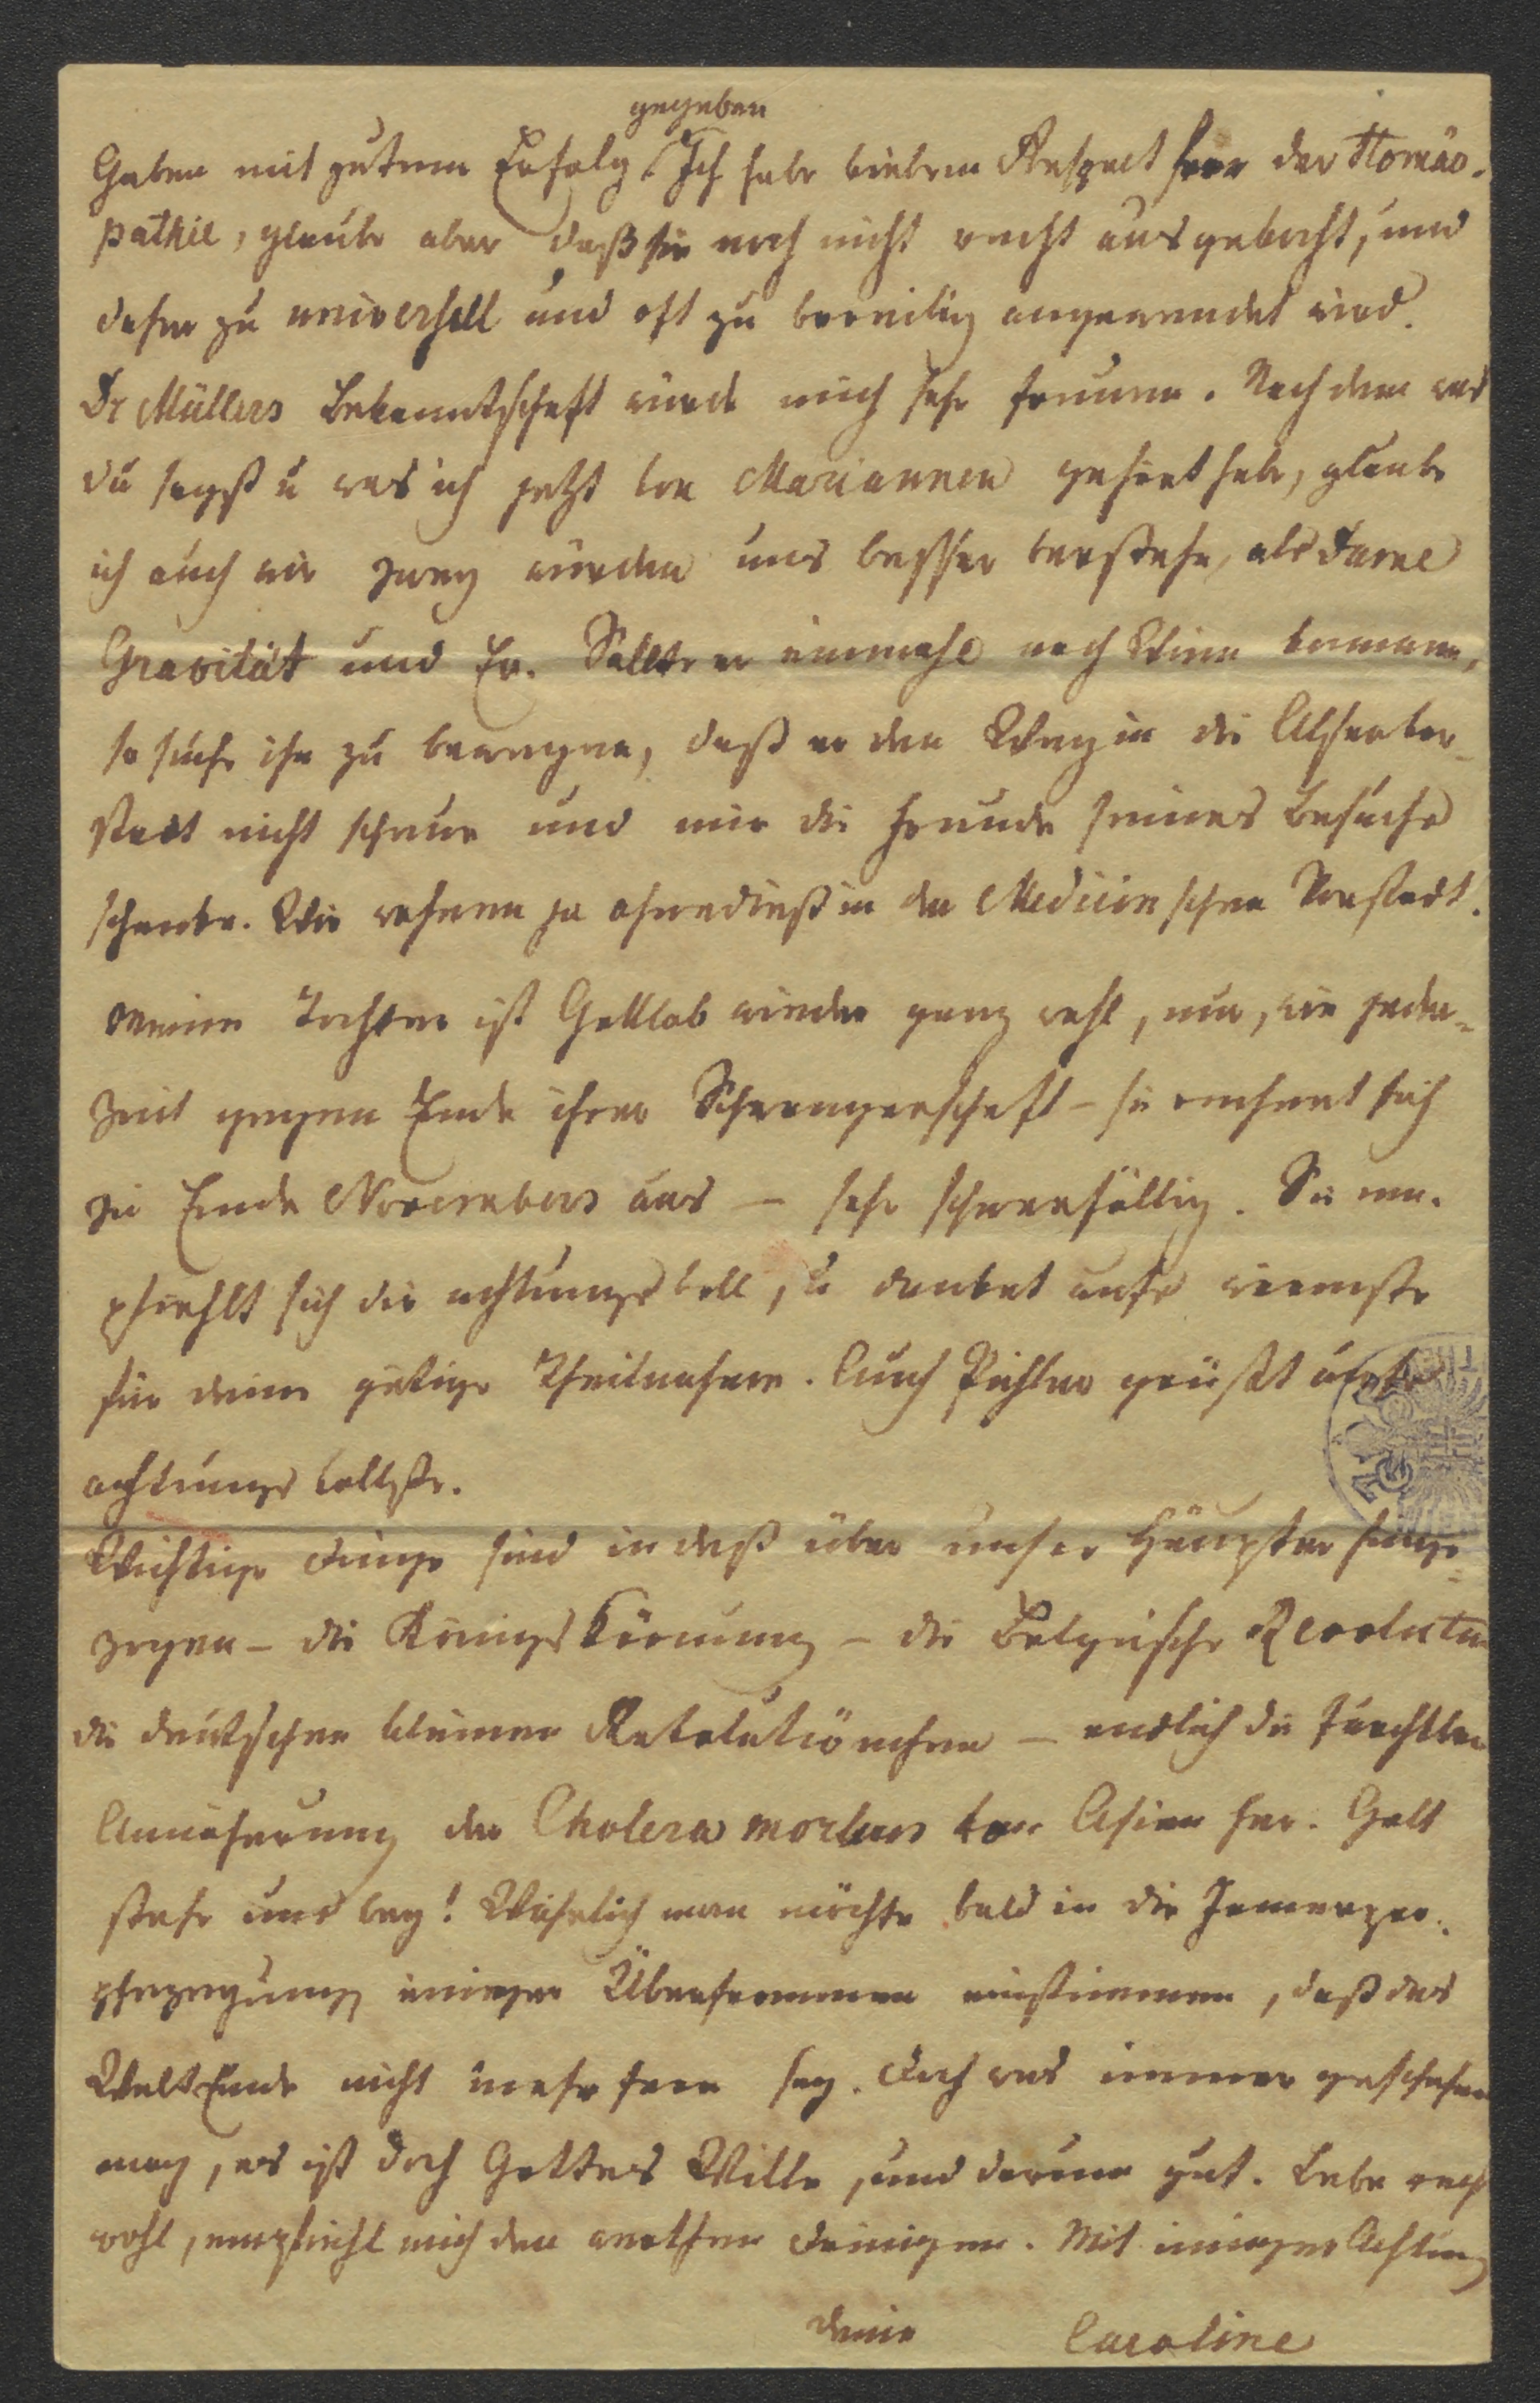 gegeben
Gaben mit gutem Erfolg. Ich habe vielen Respect vor der Homöo-
pathie, glaube aber daß sie noch nicht recht ausgekocht, und
daher zu universell und oft zu voreilig angewendet wird.
Dr Müllers Bekanntschaft würde mich sehr freuen. Nach dem was
du sagst u was ich jetzt von Mariannen gehört habe, glaube
ich auch wir zwey würden uns besser verstehn, als Dame
Gravität und Er. Sollte er einmahl nach Wien kommen,
so suche ihn zu bewegen, daß er den Weg in die Alservor-
stadt nicht scheue und mir die Freude seines Besuchs
schenke. Wir wohnen ja ohnedieß in der Medicinschen Vorstadt.
Meine Tochter ist Gottlob wieder ganz wohl, nur, wie jeder-
zeit gegen Ende ihrer Schwangerschaft – sie rechnet sich
zu Ende Novembers aus – sehr schwerfällig. Sie em-
pfiehlt sich dir achtungsvoll, u danket aufs wärmste
für deine gütige Theilnahme. Auch Pichler grüßt aufs
achtungsvollste.
Wichtige Dinge sind indeß über unser Häupter hinge-
zogen – die Königskrönung – die Belgische Revolution
die deutschen kleinen Revolutiönchen – endlich die furchtbare
Annäherung der Cholera morbus von Asien her. Gott
stehe uns bey! Wahrlich man möchte bald in die
einiger Überfrommen einstimmen, daß das
Welt Ende nicht mehr fern sey. Doch was immer geschehen
mag, es ist doch Gottes Wille, und darum gut. Lebe recht
wohl, empfiehl mich den werthen Deinigen. Mit inniger Achtung
deine Caroline